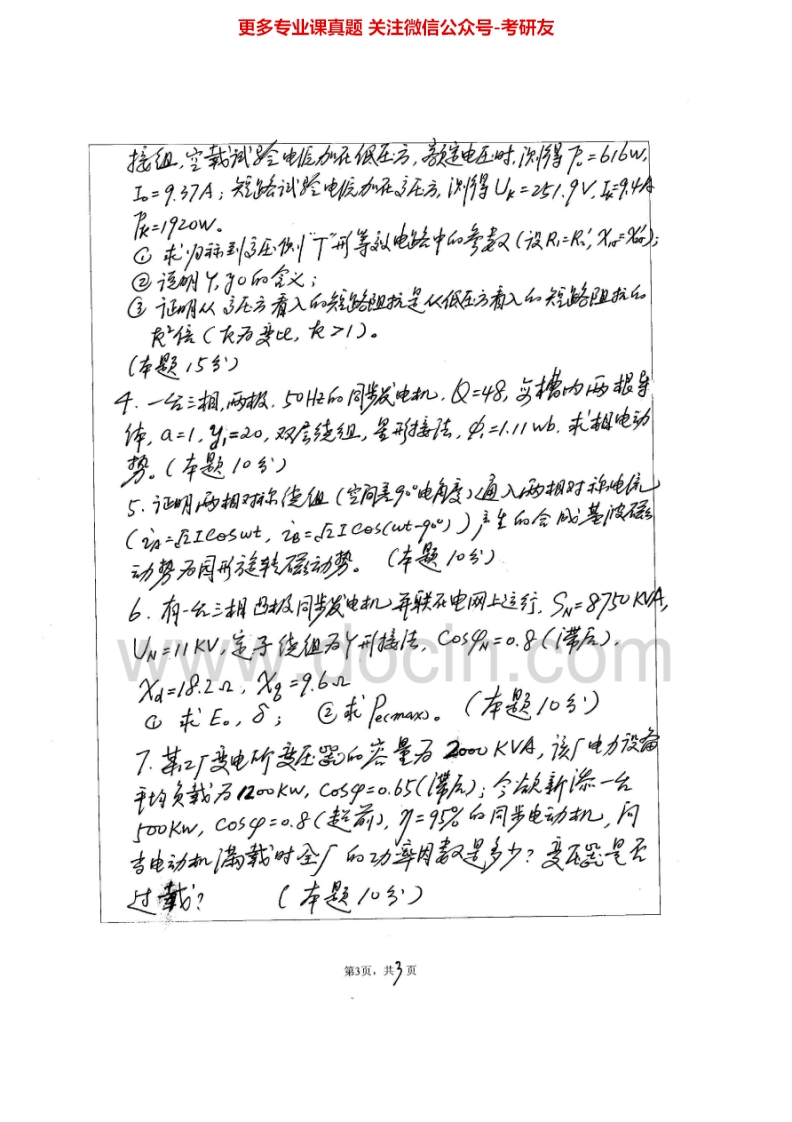 更多专业课真题 关注微信公众号-考研友
接组,空载试验电压加在低压方,额定电压时,测得P₀=616W,
I₀=9.37A;短路试验电压加在高压方,测得Uₖ=251.9V,Iₖ=9.4A
Pₖ=1920W。
① 求归标到高压侧"T"形等效电路中的参数(设R₁=R₂′,X₁σ=X₂σ′);
② 说明Y,y0的含义;
③ 证明从高压方看入的短路阻抗是从低压方看入的短路阻抗的
k²倍(k为变比,k>1)。
(本题15分)
4. 一台三相,两极,50HZ的同步发电机,Q=48,每槽内两根导
体,a=1,y₁=20,双层绕组,星形接法,Φ₁=1.11wb.求相电动
势。(本题10分)
5. 证明两相对称绕组(空间差90°电角度)通入两相对称电流
(i_A=√2Icosωt, i_B=√2Icos(ωt-90°))产生的合成基波磁
动势为圆形旋转磁动势。(本题10分)
6. 有一台三相凸极同步发电机并联在电网上运行.S_N=8750KVA,
U_N=11KV,定子绕组为Y形接法,cosφ_N=0.8(滞后),
X_d=18.2Ω,X_q=9.6Ω
① 求E₀,δ; ②求P_ec(max)。(本题10分)
www.docin.com
7. 某工厂变电所变压器的容量为2000KVA,该厂电力设备
平均负载为1200KW,cosφ=0.65(滞后);今欲新添一台
500KW,cosφ=0.8(超前),η=95%的同步电动机,问
当电动机满载时全厂的功率因数是多少?变压器是否
过载? (本题10分)
第3页,共3页